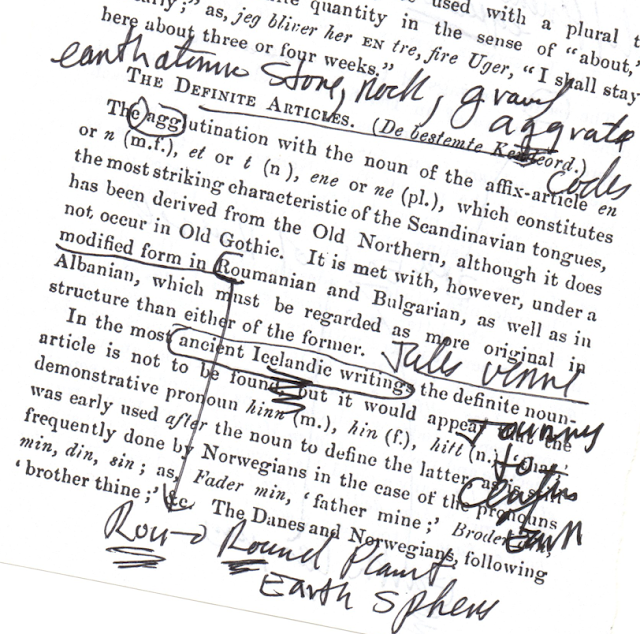 early;" as, jeg bliver her EN tre, fire Uger, "I shall stay
here about three or four weeks."
stone, rock, gravel
THE DEFINITE ARTICLES. (De bestemte
aggrata
The agglutination with the noun of the affix-article en
codes
or n (m.f.), et or t (n), ene or ne (pl.), which constitutes
the most striking characteristic of the Scandinavian tongues,
has been derived from the Old Northern, although it does
not occur in Old Gothic. It is met with, however, under a
modified form in Roumanian and Bulgarian, as well as in
Albanian, which must be regarded as more original in
structure than either of the former.
Jules Verne
In the most ancient Icelandic writings the definite noun-
article is not to be found, but it would appear the
demonstrative pronoun hinn (m.), hin (f.), hitt (n.)
was early used after the noun to define the latter, as is
frequently done by Norwegians in the case of the pronouns
min, din, sin; as, Fader min, 'father mine;' Broder
'brother thine;' &c. The Danes and Norwegians, following
Journey
to
Earth
Round Planet
Earth Sphere